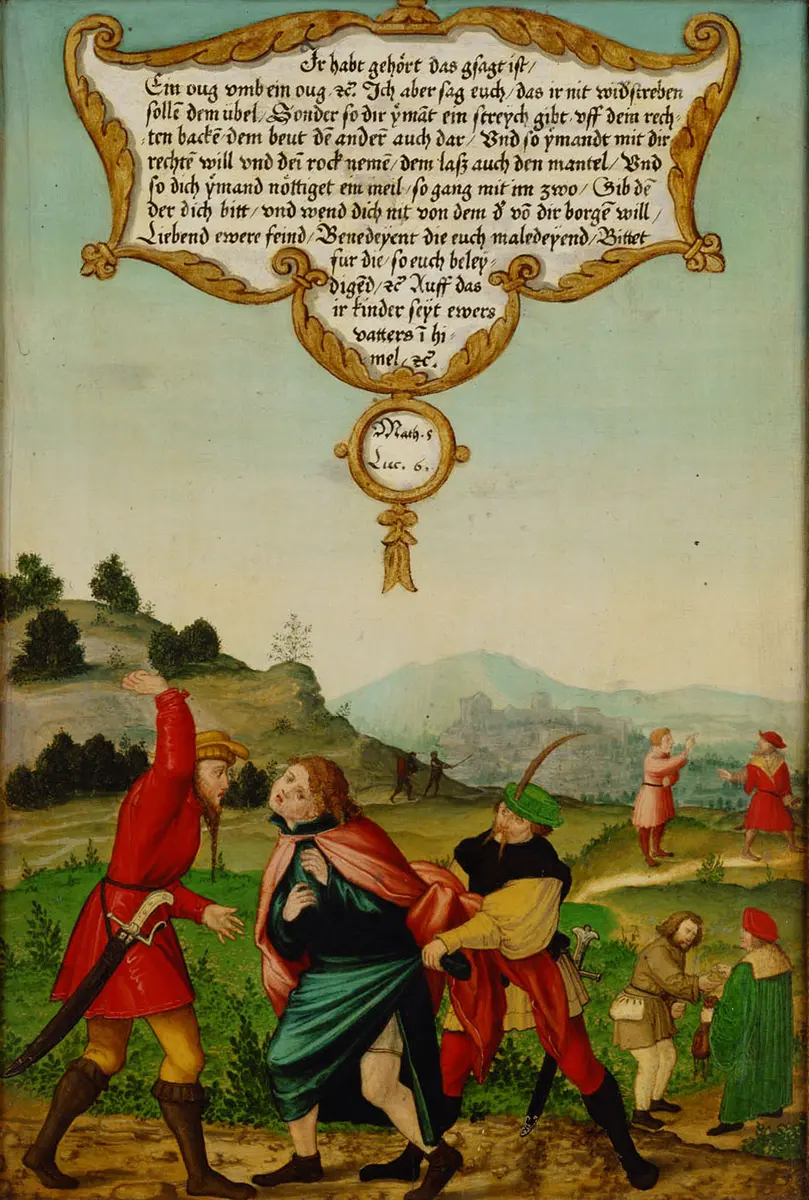 Ir habt gehört das gsagt ist/
Ein oug vmb ein oug/ ⁊c̃. Ich aber sag euch/ das ir nit widstreben
sollẽ dem übel/ Sonder so dir ÿmãt ein streych gibt vff dein rech-
-ten backẽ dem beut dẽ anderñ auch dar/ Vnd so ÿmandt mit dir
rechtẽ will vnd deĩ rock nemẽ/ dem laß auch den mantel/ Vnd
so dich ÿmand nöttiget ein meil/ so gang mit im zwo/ Gib dẽ
der dich bitt/ vnd wend dich nit von dem đ võ dir borgẽ will/
Liebend ewere feind/ Benedeyent die euch maledeyend/ Bittet
fur die/ so euch beley-
digẽd/ ⁊c̃ Auff das
ir kinder seÿt ewers
vatters ĩ hi-
mel/ ⁊c̃.
Math. 5
Luc. 6.